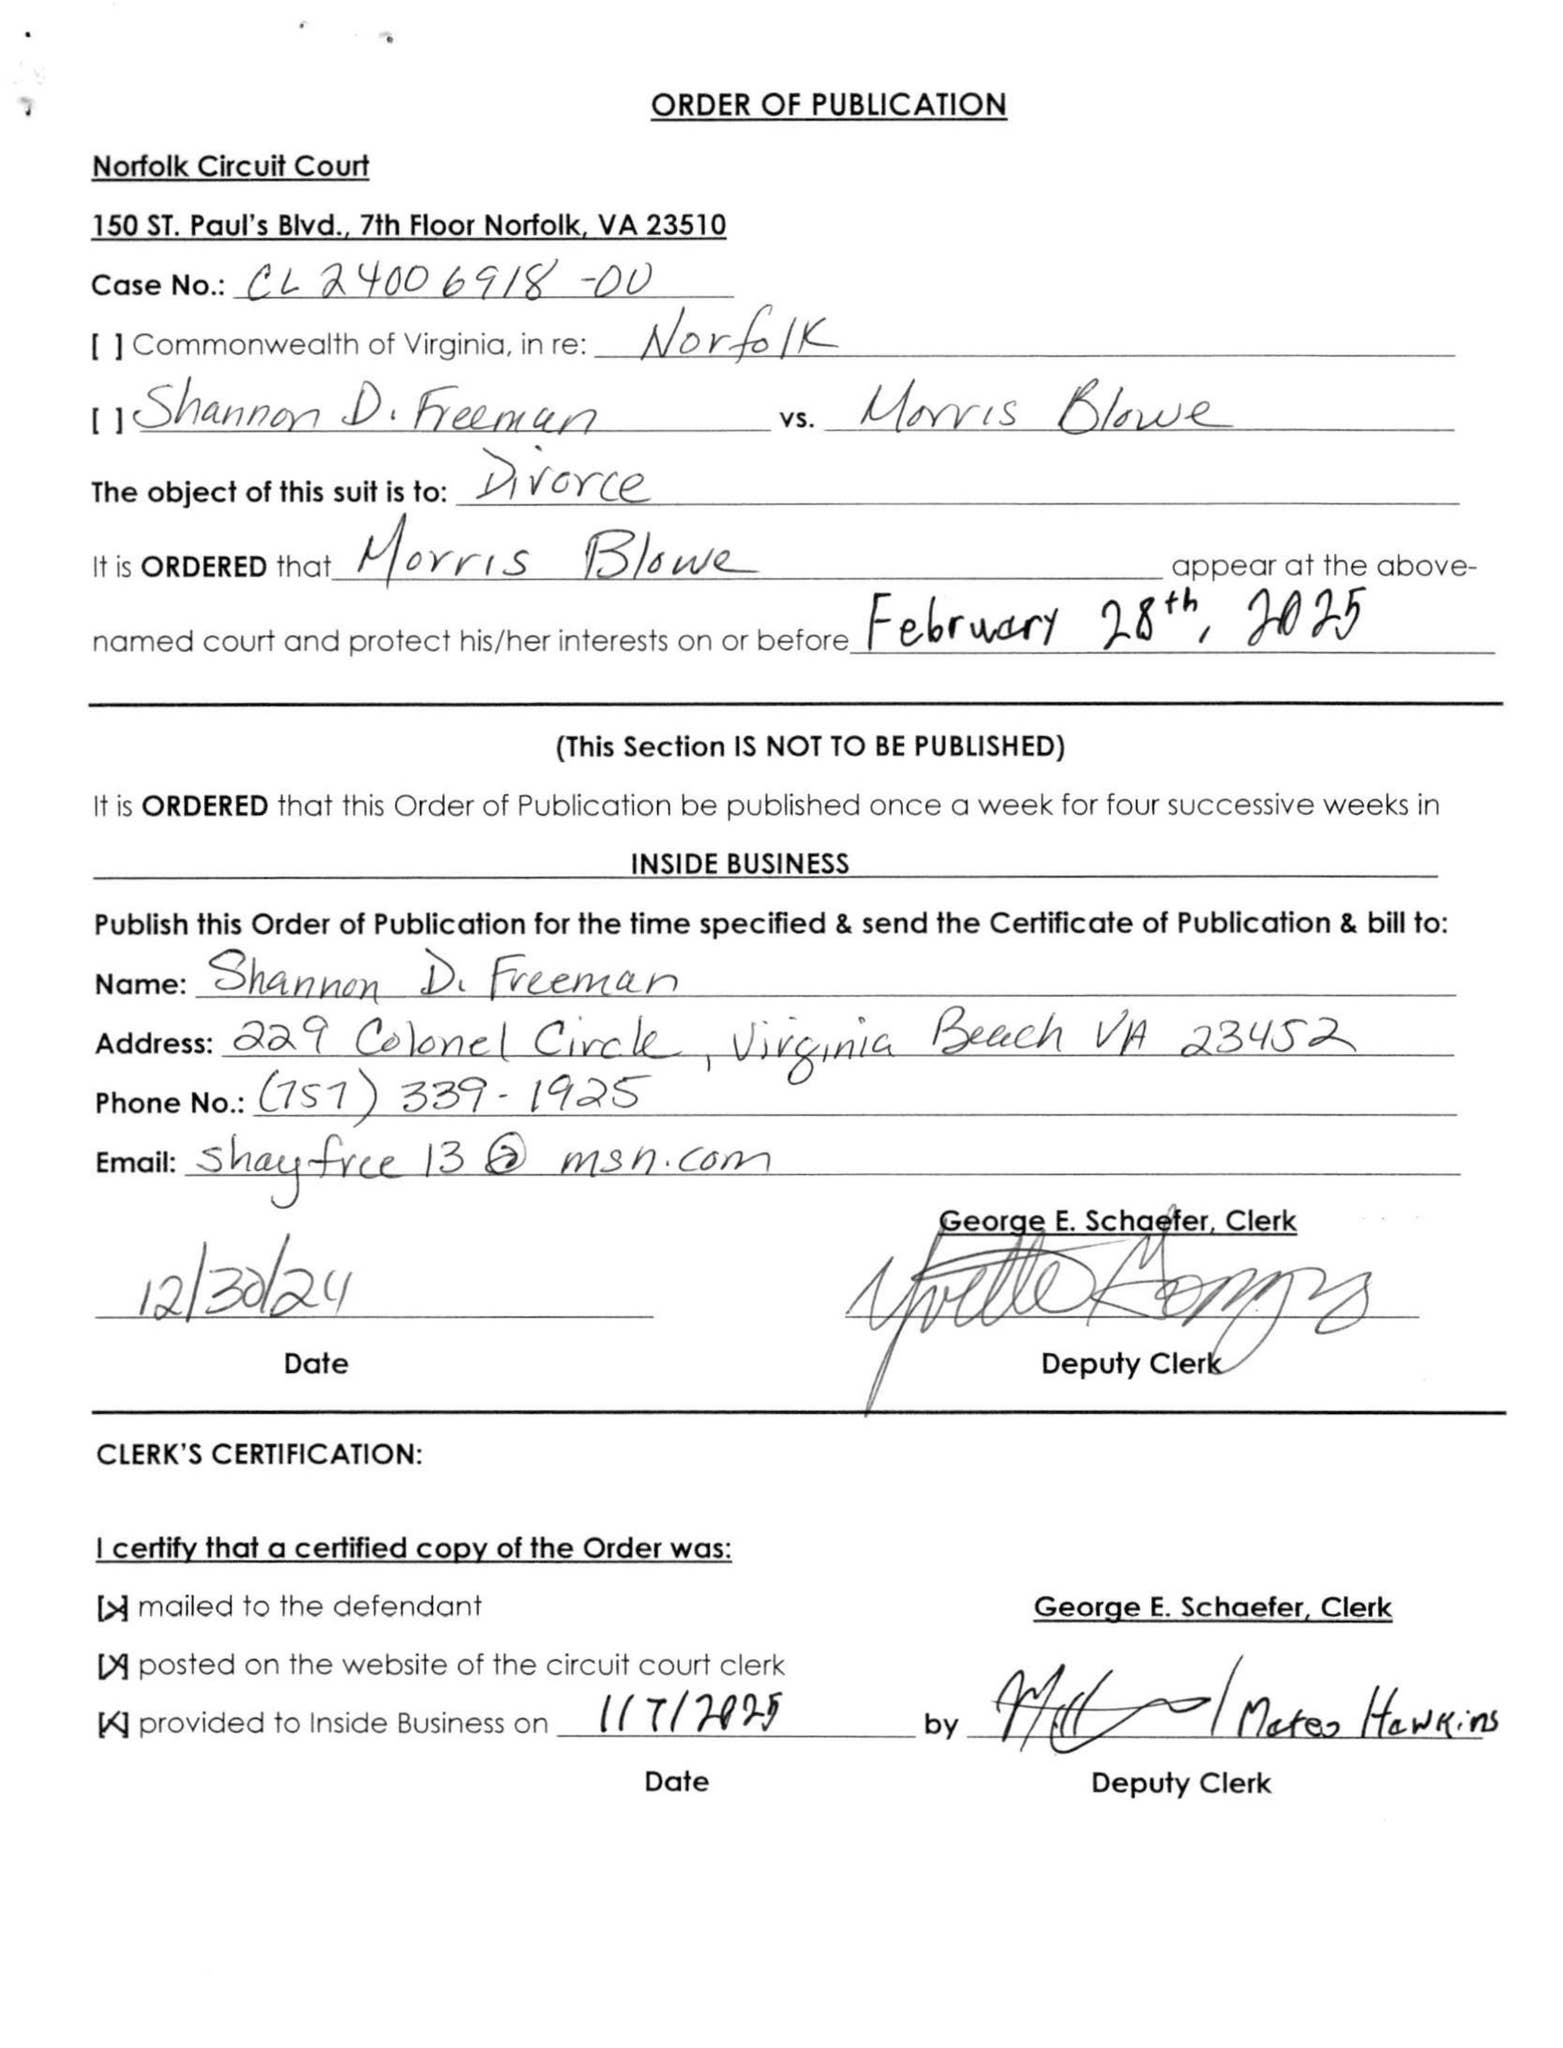 ORDER OF PUBLICATION
Norfolk Circuit Court
150 ST. Paul's Blvd., 7th Floor Norfolk, VA 23510
Case No.: CL24006918-00
[ ] Commonwealth of Virginia, in re: Norfolk
[ ] Shannon D. Freeman vs. Morris Blowe
The object of this suit is to: Divorce
It is ORDERED that Morris Blowe appear at the above-
named court and protect his/her interests on or before February 28th, 2025
(This Section IS NOT TO BE PUBLISHED)
It is ORDERED that this Order of Publication be published once a week for four successive weeks in
INSIDE BUSINESS
Publish this Order of Publication for the time specified & send the Certificate of Publication & bill to:
Name: Shannon D. Freeman
Address: 229 Colonel Circle, Virginia Beach VA 23452
Phone No.: (757) 339-1925
Email: shayfree13@msn.com
George E. Schaefer, Clerk
12/30/24 Yvette
Date Deputy Clerk
CLERK'S CERTIFICATION:
I certify that a certified copy of the Order was:
[x] mailed to the defendant George E. Schaefer, Clerk
[x] posted on the website of the circuit court clerk
[x] provided to Inside Business on 1/7/2025 by / Mateo Hawkins
Date Deputy Clerk